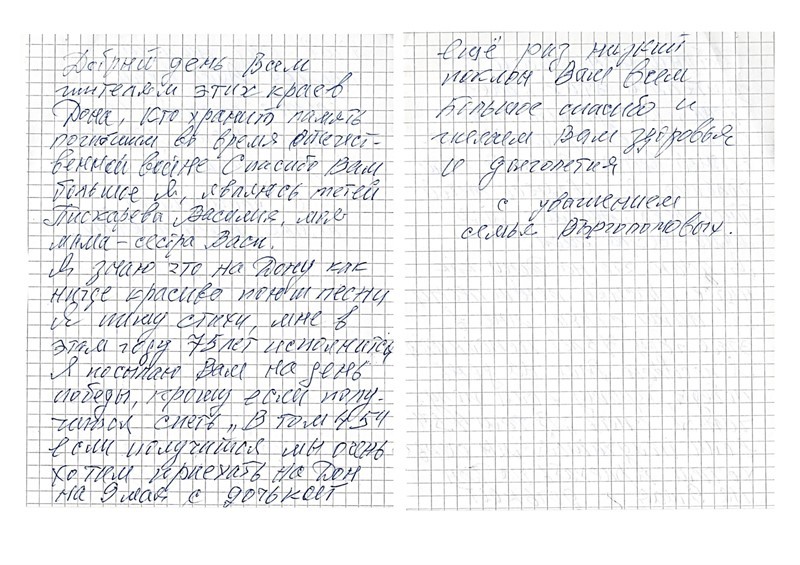 Добрый день Вам
жителям этих краев
Дона, кто хранит память
погибшим во время Отечест-
венной войне Спасибо Вам
большое Я, являюсь тетей
Пискарева Василия, моя
мама - сестра Васи.
Я знаю что на Дону как
нигде красиво поют песни
Я пишу стихи, мне в
этом году 75 лет исполнится
Я посылаю Вам на день
победы, прошу если полу-
читься спеть „В том
если получится мы очень
хотим приехать на Дон
на 9 мая с дочькой
ещё раз низкий
поклон Вам всем
Большое спасибо и
желаем Вам здоровья
и долголетия
с уважением
семья